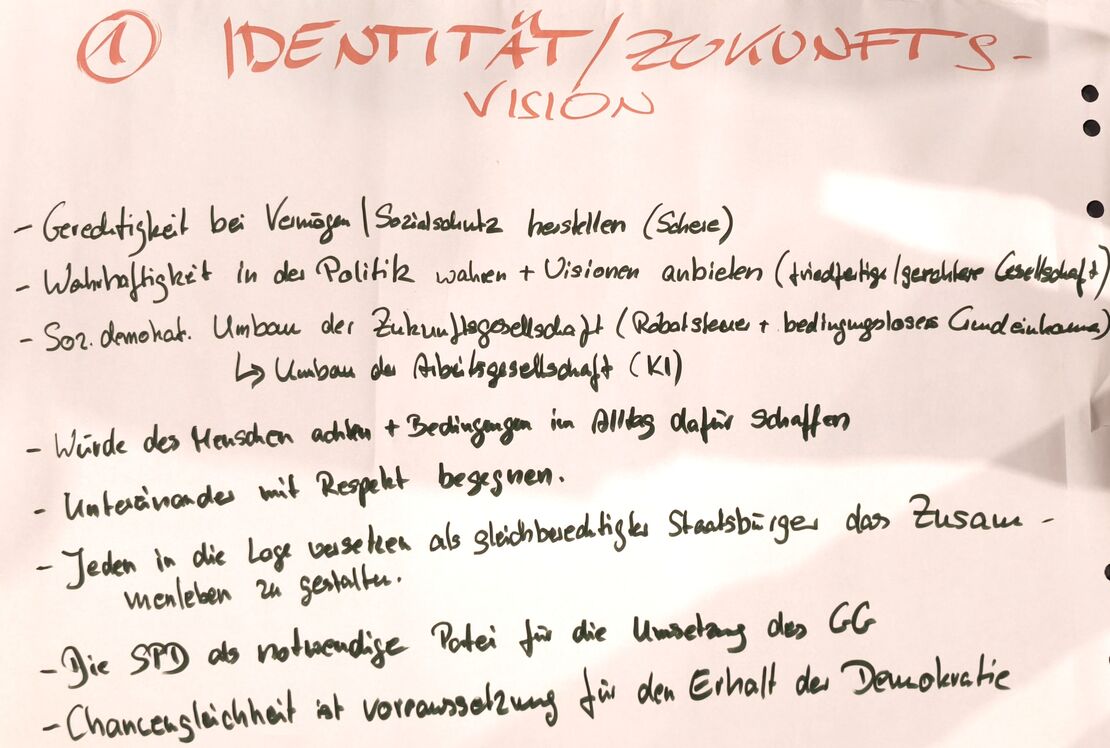 1 IDENTITÄT/ZUKUNFTS-
VISION
- Gerechtigkeit bei Vermögen/Sozialschutz herstellen (Schere)
- Wahrhaftigkeit in der Politik wahren + Visionen anbieten (friedfertige/gerechtere Gesellschaft)
- Soz. demokrat. Umbau der Zukunftsgesellschaft (Robotsteuer + bedingungsloses Grundeinkomm)
↳ Umbau der Arbeitsgesellschaft (KI)
- Würde des Menschen achten + Bedingungen im Alltag dafür schaffen
- Untereinander mit Respekt begegnen.
- Jeden in die Lage versetzen als gleichberechtigter Staatsbürger das Zusam-
menleben zu gestalten.
- Die SPD als notwendige Partei für die Umsetzung des GG
- Chancengleichheit ist vorraussetzung für den Erhalt der Demokratie